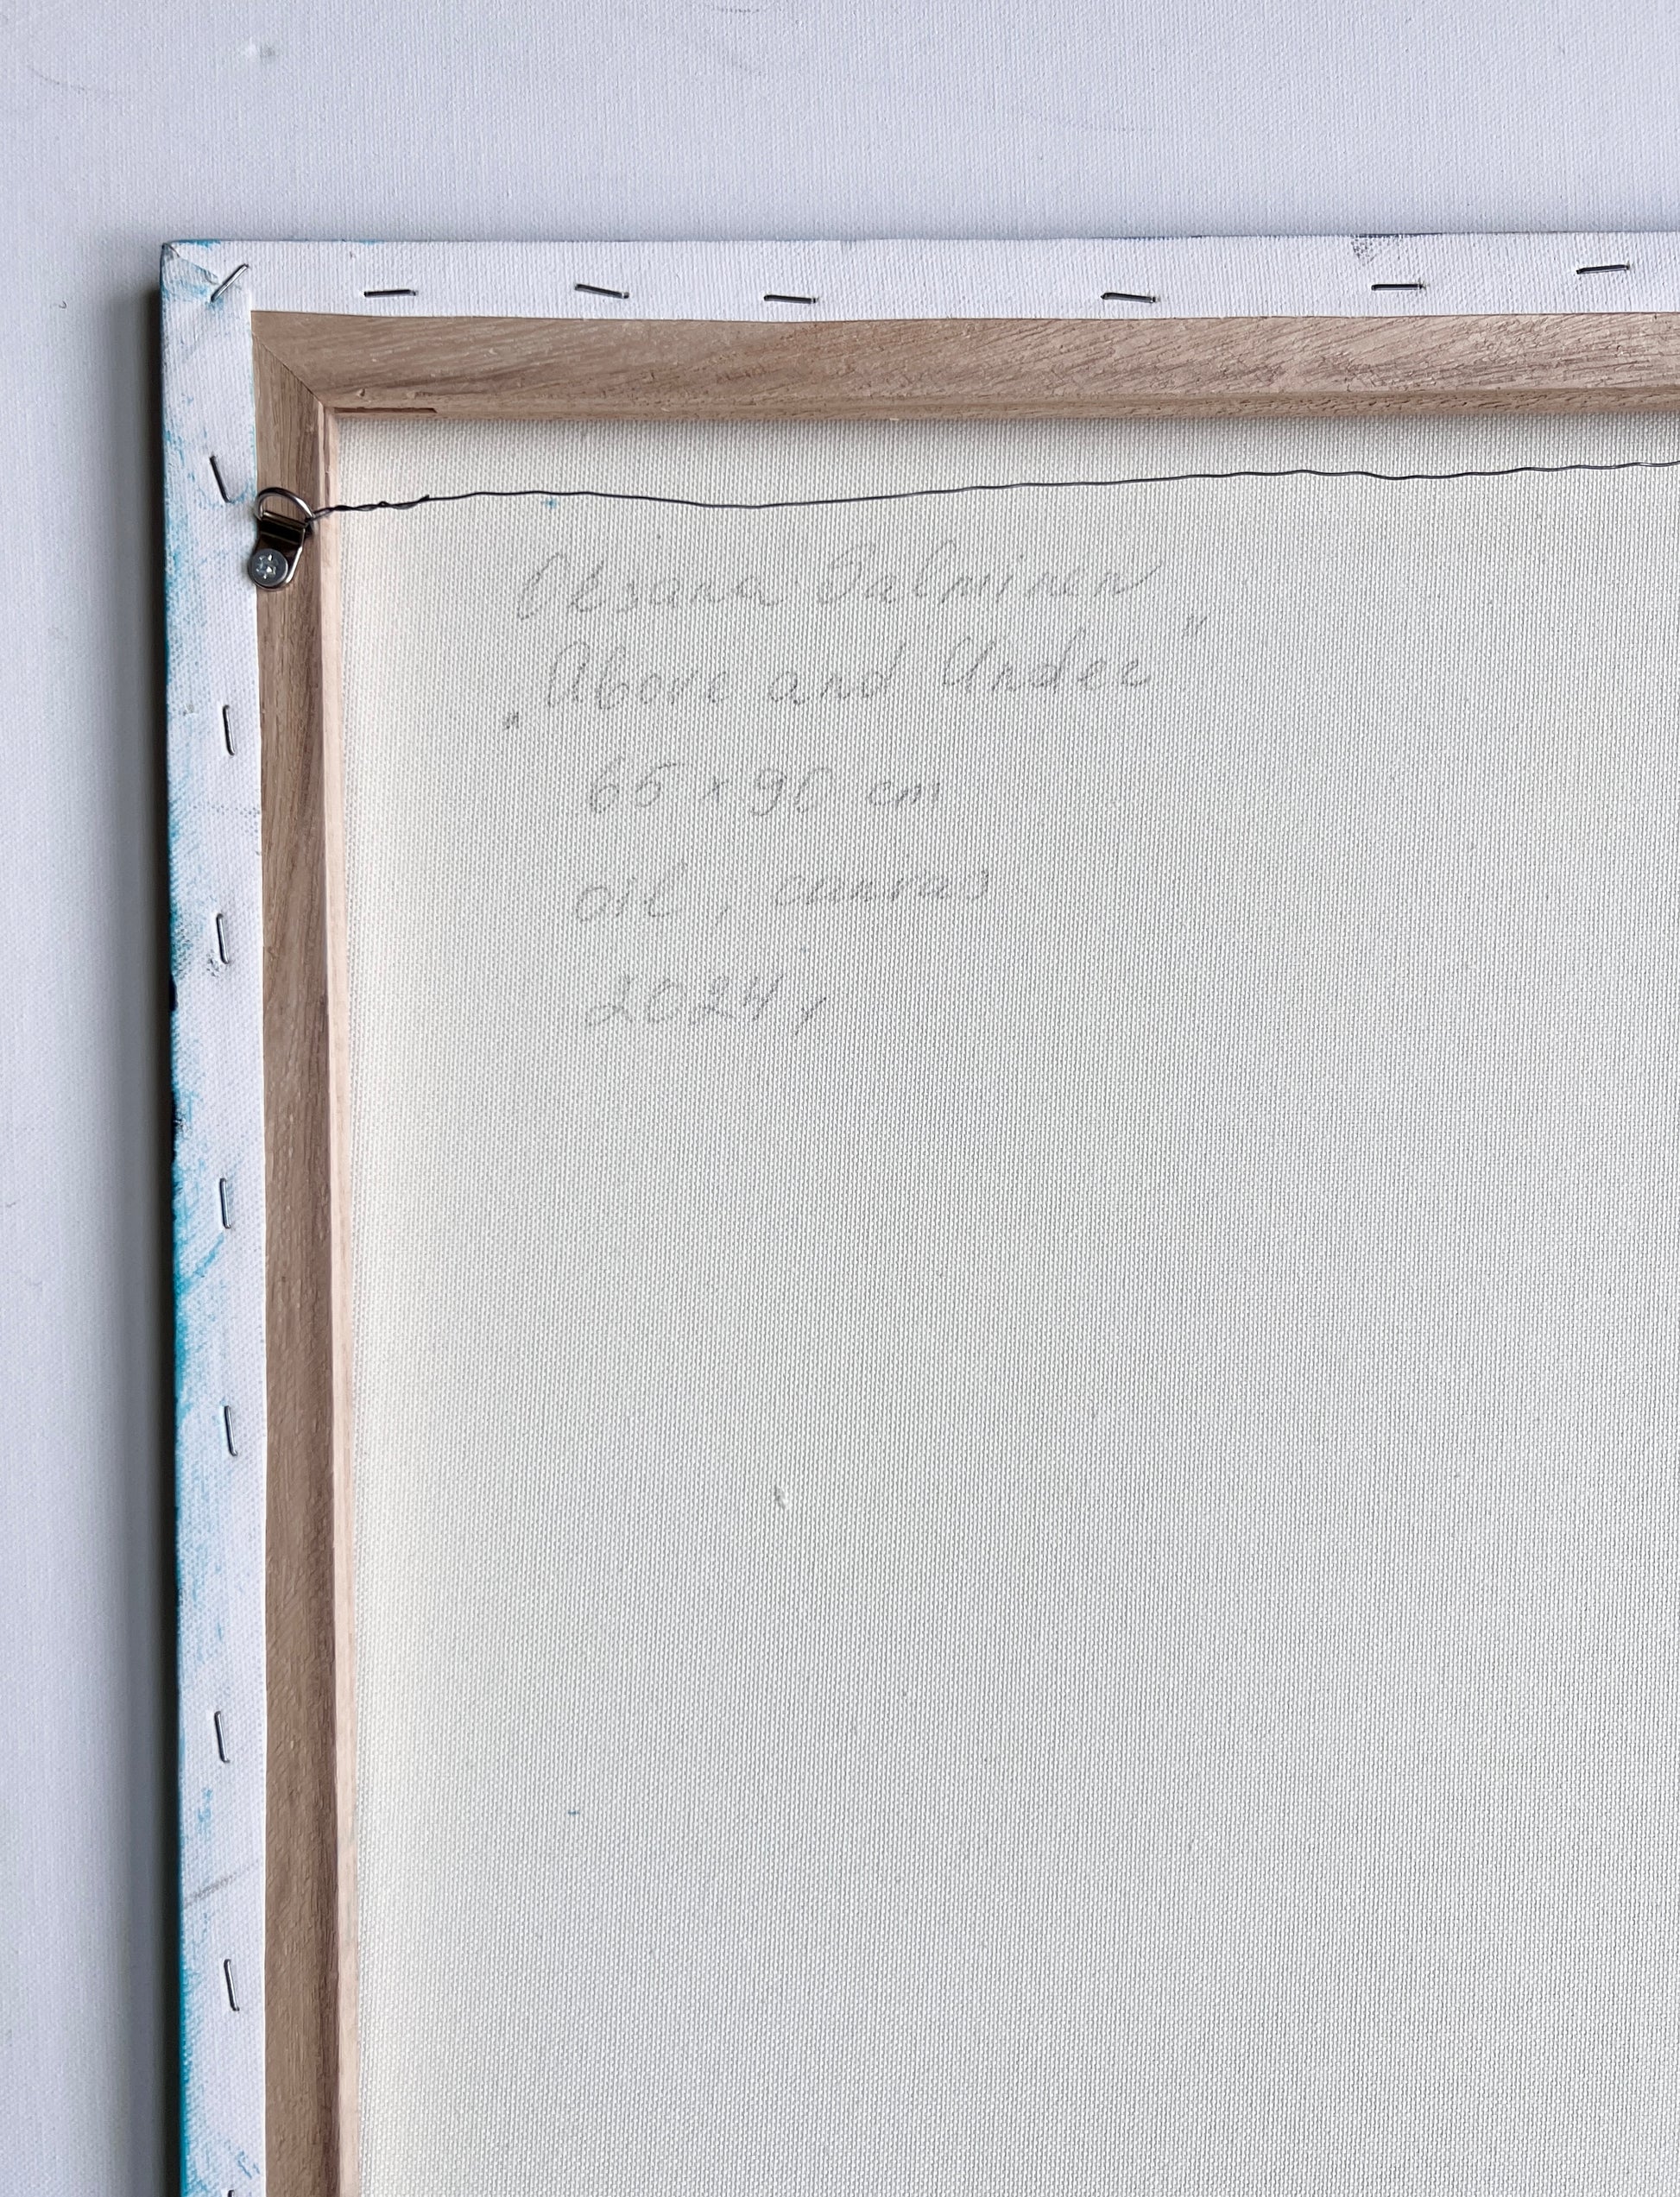 Oksana Salminen
„Above and Under"
65 x 90 cm
oil, canvas
2024,